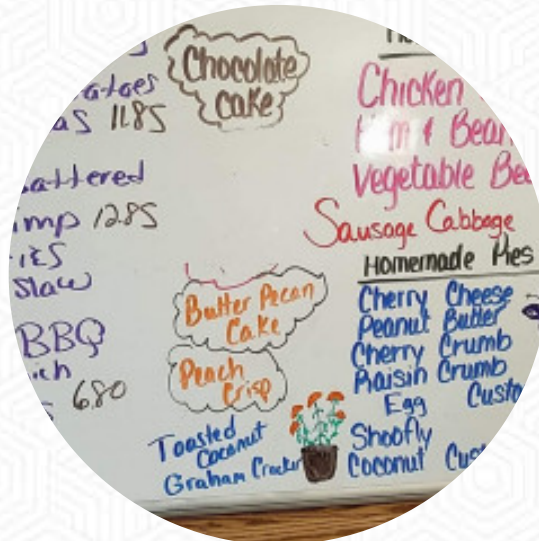 11.85
12.85
Slaw
BBQ
6.80
Chocolate
Cake
Butter Pecan
Cake
Peach
Crisp
Toasted
Coconut
Graham Cracker
Chicken
Ham & Bean
Vegetable
Sausage Cabbage
Homemade Pies
Cherry Cheese
Peanut Butter
Cherry Crumb
Raisin Crumb
Egg
Shoofly
Coconut